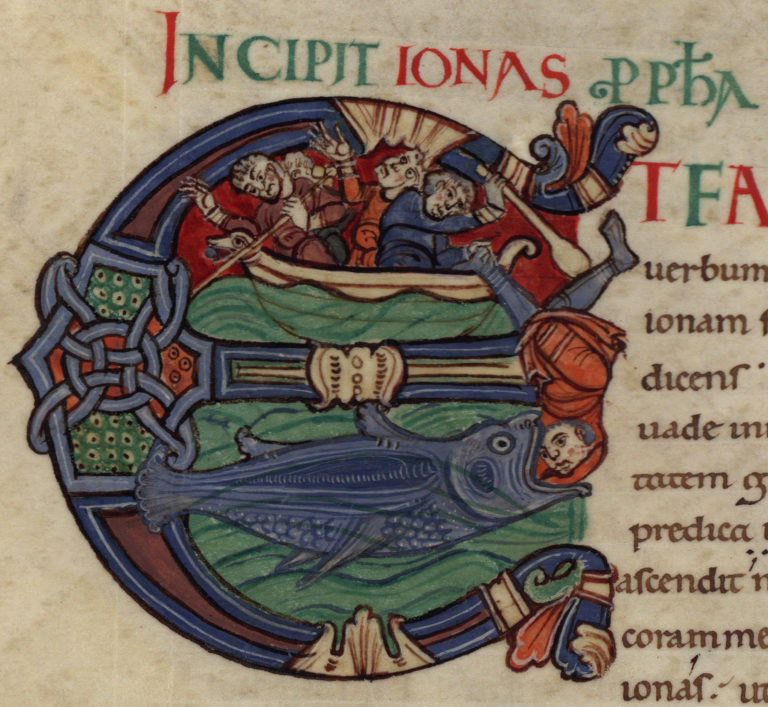 INCIPIT IONAS PPħA
ET FA
uerbum
ionam s
dicens
uade in
tatem g
predica i
ascendit m
coram me
ionas. ut